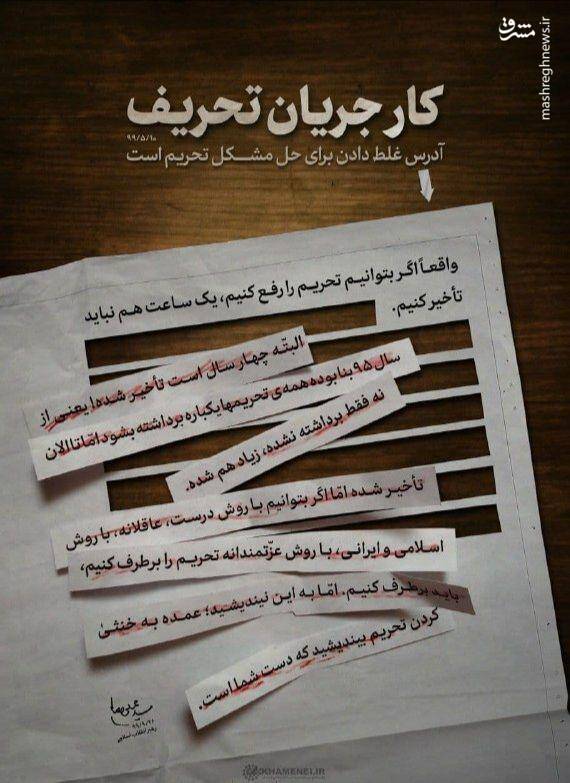 مشرق
mashreghnews.ir
کار جریان تحریف
۹۹/۵/۱۰
آدرس غلط دادن برای حل مشکل تحریم است
واقعاً اگر بتوانیم تحریم را رفع کنیم، یک ساعت هم نباید
تأخیر کنیم.
البتّه چهار سال است تأخیر شده؛ یعنی از
سال ۹۵ بنا بوده همه‌ی تحریمها یکباره برداشته بشود امّا تا الان
نه فقط برداشته نشده، زیاد هم شده.
تأخیر شده امّا اگر بتوانیم با روش درست، عاقلانه، با روش
اسلامی و ایرانی، با روش عزّتمندانه تحریم را برطرف کنیم،
باید برطرف کنیم. امّا به این نیندیشید؛ عمده به خنثیٰ
کردن تحریم بیندیشید که دست شما است.
۹۹/۹/۲۶
رهبر انقلاب اسلامی
KHAMENEI.IR